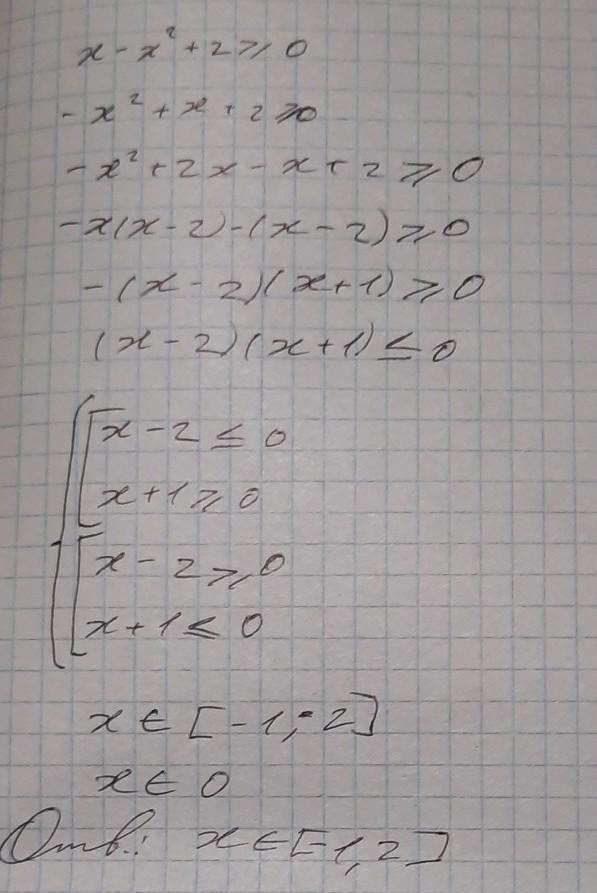 x - x² + 2 ⩾ 0
- x² + x + 2 ⩾ 0
- x² + 2x - x + 2 ⩾ 0
-x(x - 2) - (x - 2) ⩾ 0
- (x - 2)(x + 1) ⩾ 0
(x - 2)(x + 1) ≤ 0
x - 2 ≤ 0
x + 1 ⩾ 0
x - 2 ⩾ 0
x + 1 ≤ 0
x ∈ [-1; 2]
x ∈ 0
Отв.: x ∈ [-1, 2]